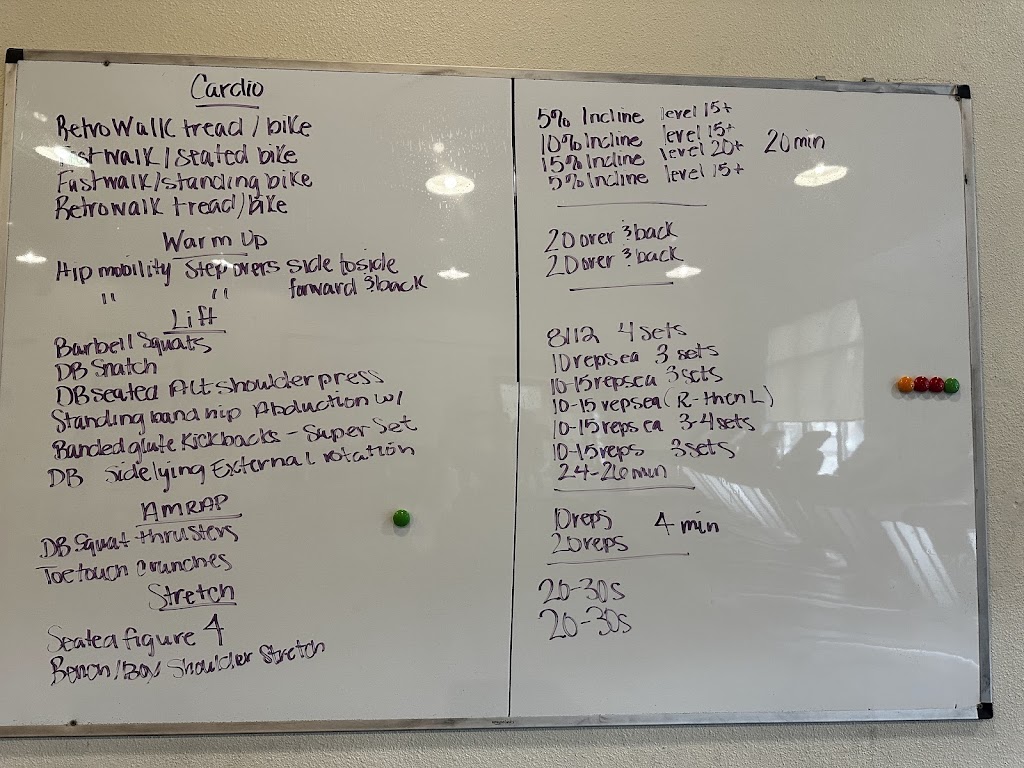 Cardio
RetroWalk tread / bike
Fastwalk / seated bike
Fastwalk/standing bike
Retrowalk tread/bike
Warm Up
Hip mobility Step overs side to side
" " forward & back
Lift
Barbell Squats
DB Snatch
DB seated Alt shoulder press
Standing band hip Abduction w/
Banded glute Kickbacks - Super Set
DB Sidelying External rotation
AMRAP
DB Squat thrusters
Toe touch crunches
Stretch
Seated figure 4
Bench/Box Shoulder Stretch
5% Incline level 15+
10% Incline level 15+
15% Incline level 20+ 20 min
5% Incline level 15+
20 over & back
20 over & back
8/12 4 sets
10 reps ea 3 sets
10-15 reps ea 3 sets
10-15 reps ea (R-then L)
10-15 reps ea 3-4 sets
10-15 reps 3 sets
24-26 min
10 reps 4 min
20 reps
20-30s
20-30s